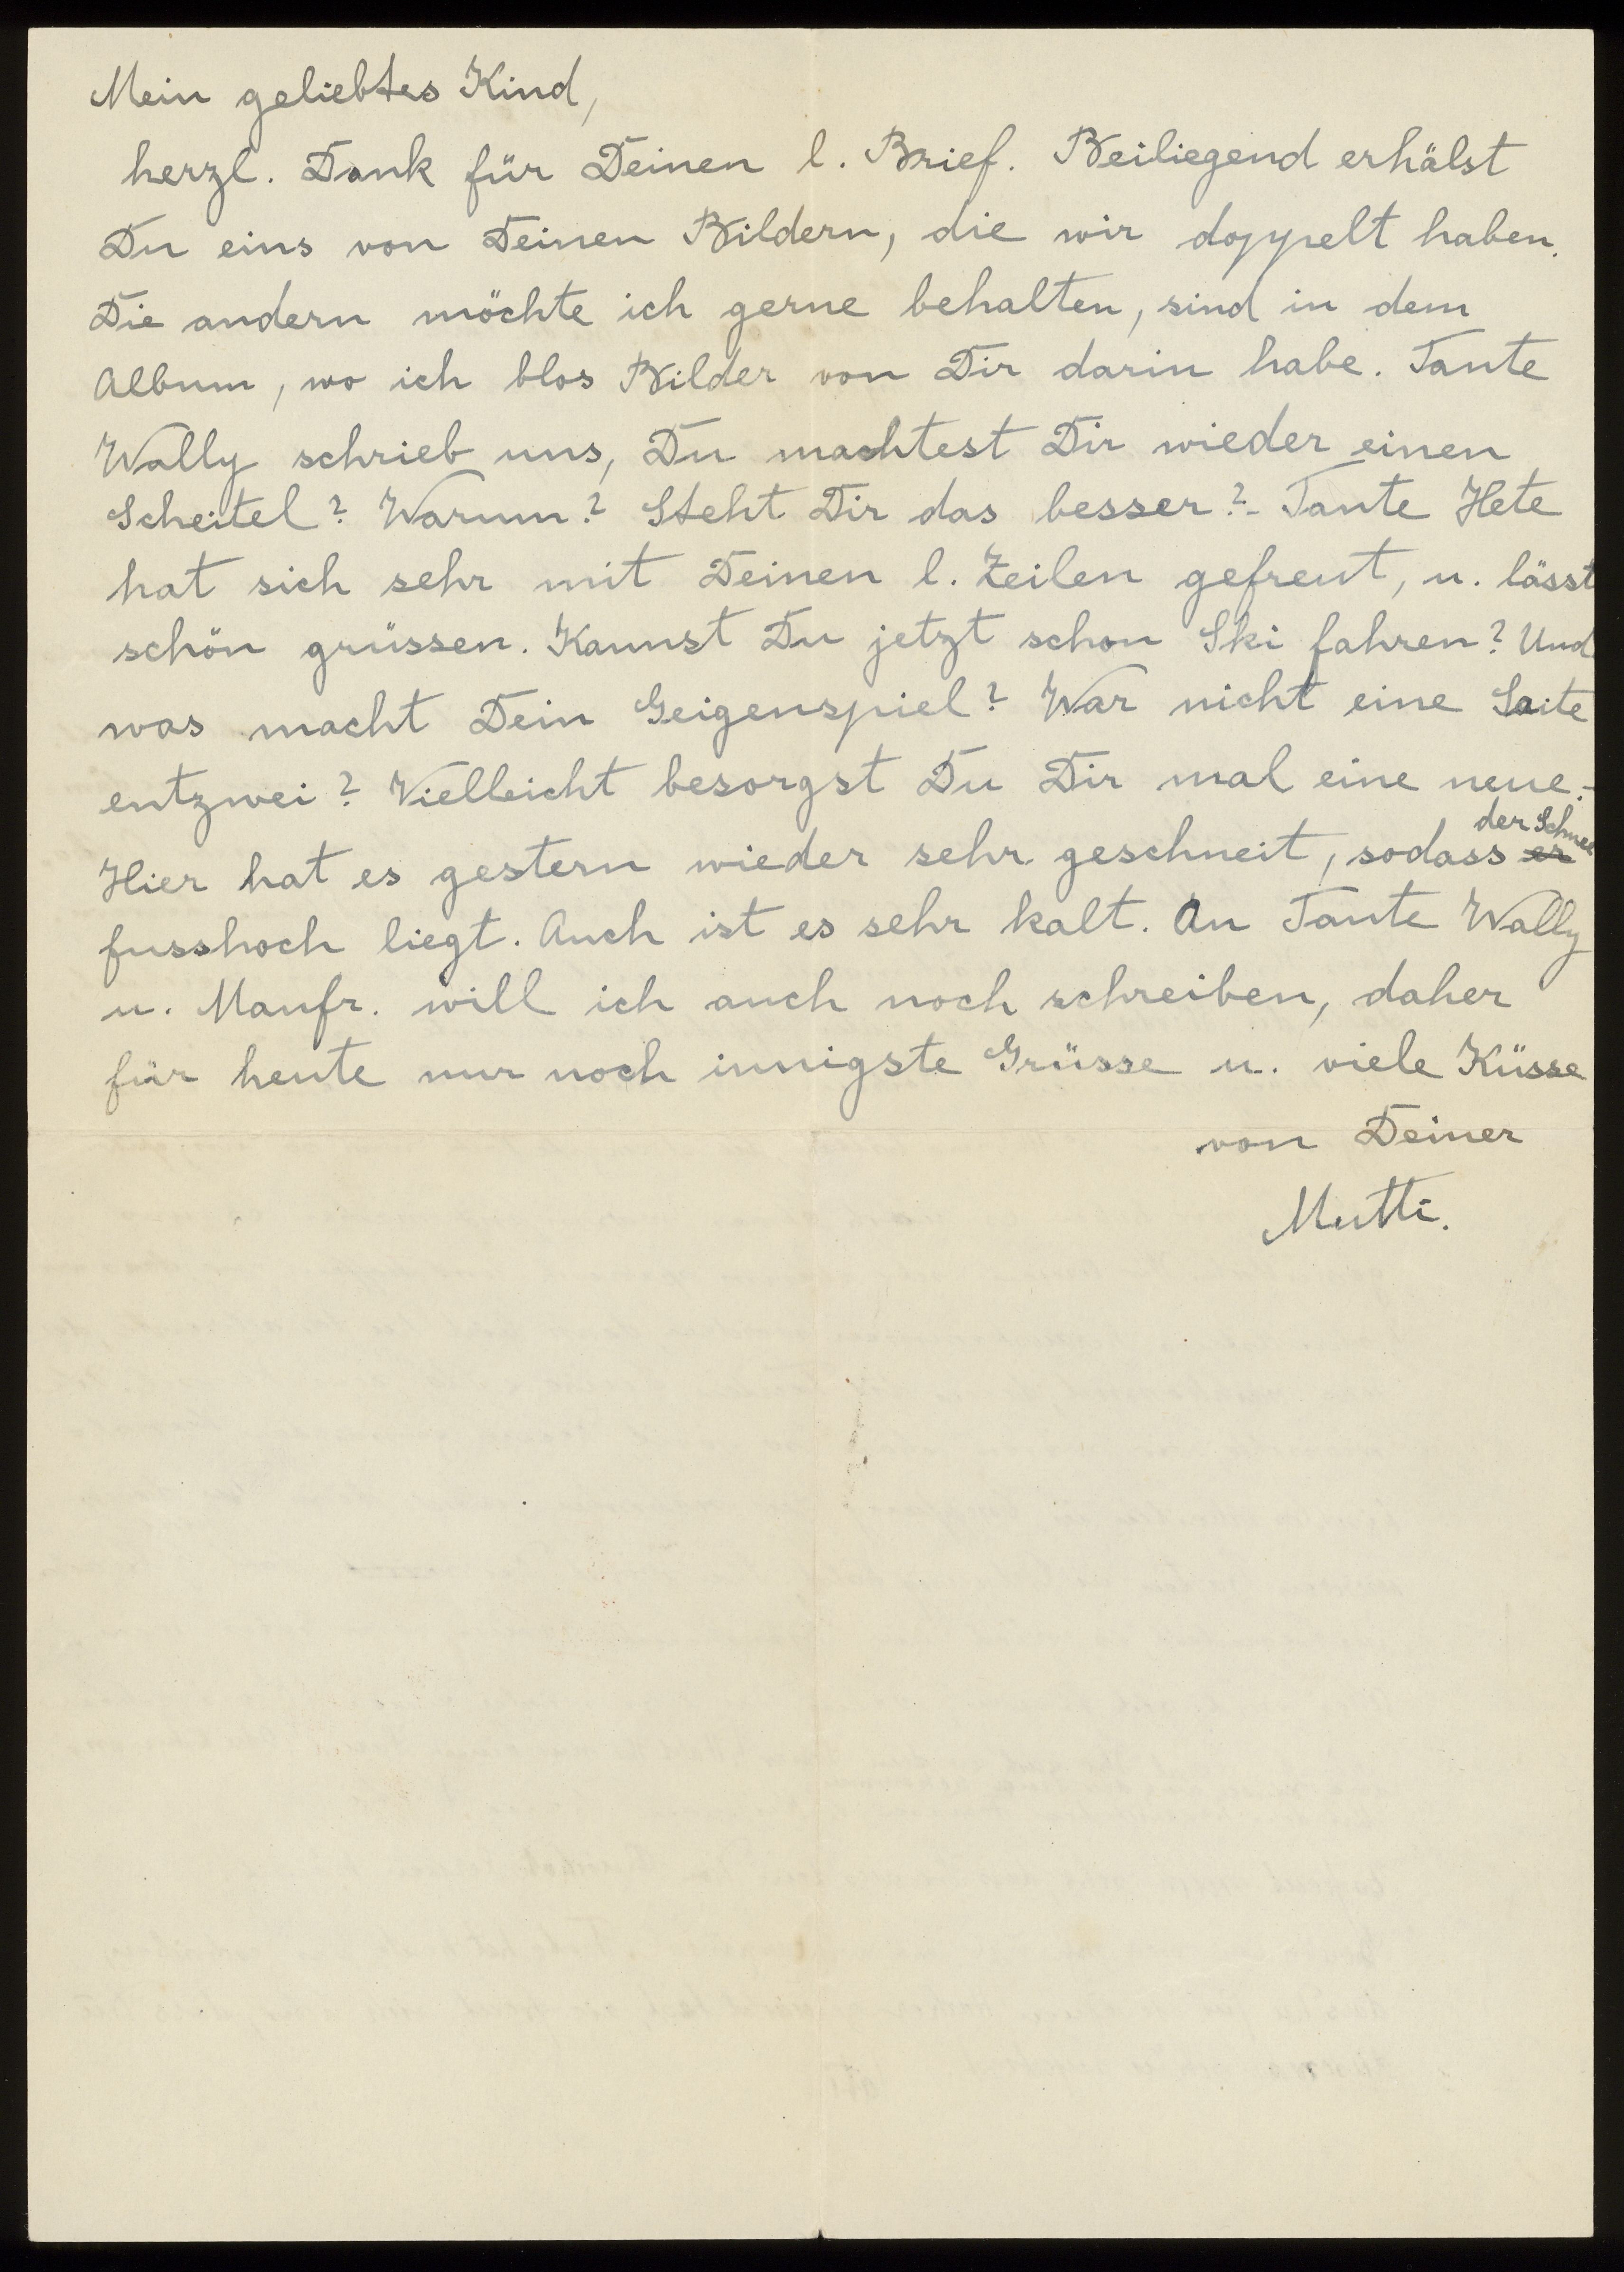 Mein geliebtes Kind,
herzl. Dank für Deinen l. Brief. Beiliegend erhälst
Du eins von Deinen Bildern, die wir doppelt haben.
Die andern möchte ich gerne behalten, sind in dem
Album, wo ich blos Bilder von Dir darin habe. Tante
Wally schrieb uns, Du machtest Dir wieder einen
Scheitel? Warum? Steht Dir das besser?- Tante Hete
hat sich sehr mit Deinen l. Zeilen gefreut, u. lässt
schön grüssen. Kannst Du jetzt schon Ski fahren? Und
was macht Dein Geigenspiel? War nicht eine Saite
entzwei? Vielleicht besorgst Du Dir mal eine neue.-
der Schnee
Hier hat es gestern wieder sehr geschneit, sodass er
fusshoch liegt. Auch ist es sehr kalt. An Tante Wally
u. Manfr. will ich auch noch schreiben, daher
für heute nur noch innigste Grüsse u. viele Küsse
von Deiner
Mutti.